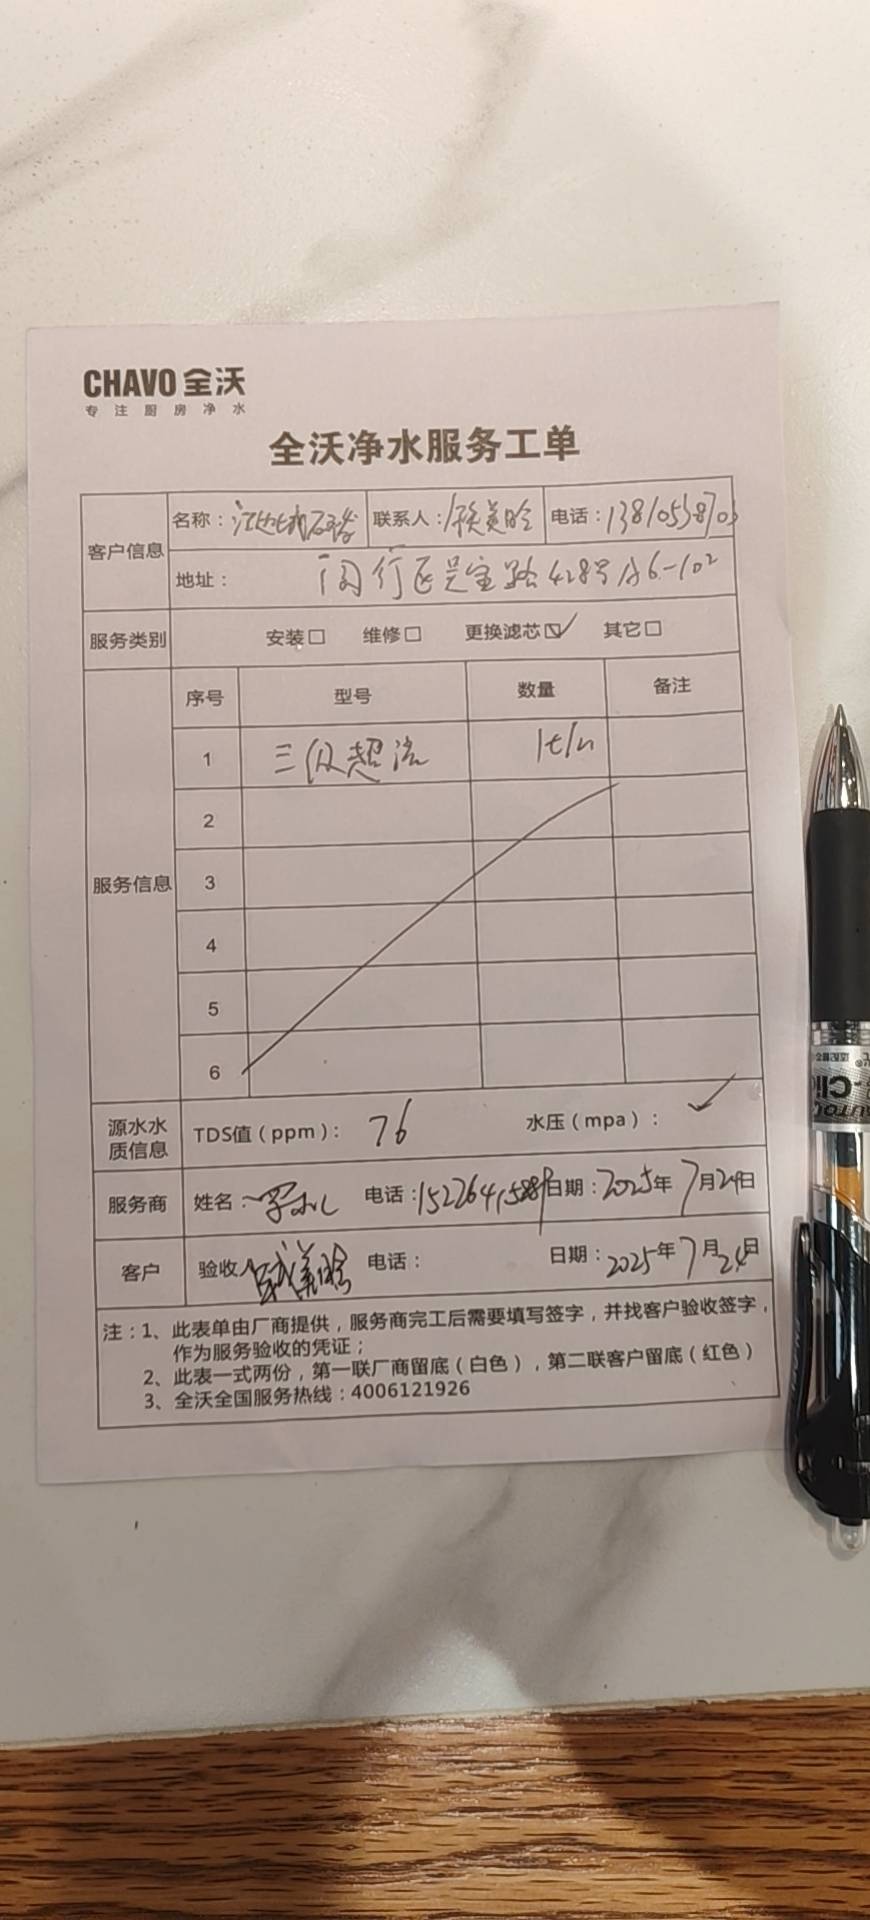 CHAVO 全沃
专注厨房净水
全沃净水服务工单
客户信息 名称： 联系人： 电话：
地址： 闵行区吴宝路428号A6-102
服务类别 安装□ 维修□ 更换滤芯☑ 其它□
服务信息 序号 型号 数量 备注
1 三级超滤
2
3
4
5
6
源水水质信息 TDS值（ppm）： 76 水压（mpa）： ✓
服务商 姓名： 电话： 日期：2025年7月24日
客户 验收人 电话： 日期：2025年7月24日
注：1、此表单由厂商提供，服务商完工后需要填写签字，并找客户验收签字，
作为服务验收的凭证；
2、此表一式两份，第一联厂商留底（白色），第二联客户留底（红色）
3、全沃全国服务热线：4006121926